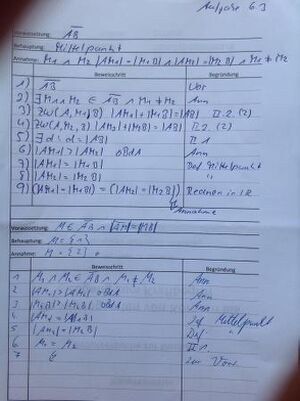 Aufgabe 6.3
Voraussetzung: AB
Behauptung: Mittelpunkt
Annahme: M1 ∧ M2 |AM1|=|M1B| ∧ |AM2|=|M2B| ∧ M1≠M2
Beweisschritt Begründung
1) AB Vor
2) ∃ M1 ∧ M2 ∈ AB ∧ M1 ≠ M2 Ann
3) Zw(A,M1,B) |AM1|+|M1B|=|AB| II.2.(2)
4) Zw(A,M2,B) |AM2|+|M2B|=|AB| II.2.(2)
5) ∃ d: d=|AB| II.1
6) |AM1|>|AM2| oBdA Ann
7) |AM1|=|M1B| Def. Mittelpunkt
8) |AM2|=|M2B| "
9) (|AM1|=|M1B|) = (|AM2|=|M2B|) Rechnen in IR
Annahme
Voraussetzung: M ∈ AB ∧ |AM|=|MB|
Behauptung: M={1}
Annahme: M={2}
Beweisschritt Begründung
1 M1 ∧ M2 ∈ AB ∧ M1 ≠ M2 Ann
2 |AM1|>|AM2| oBdA Ann
3 |M2B|>|M1B| oBdA Ann
4 |AM1|=|M1B| Def Mittelpunkt
5 |AM2|=|M2B| Def "
6 M1 = M2
7 zur Vor.